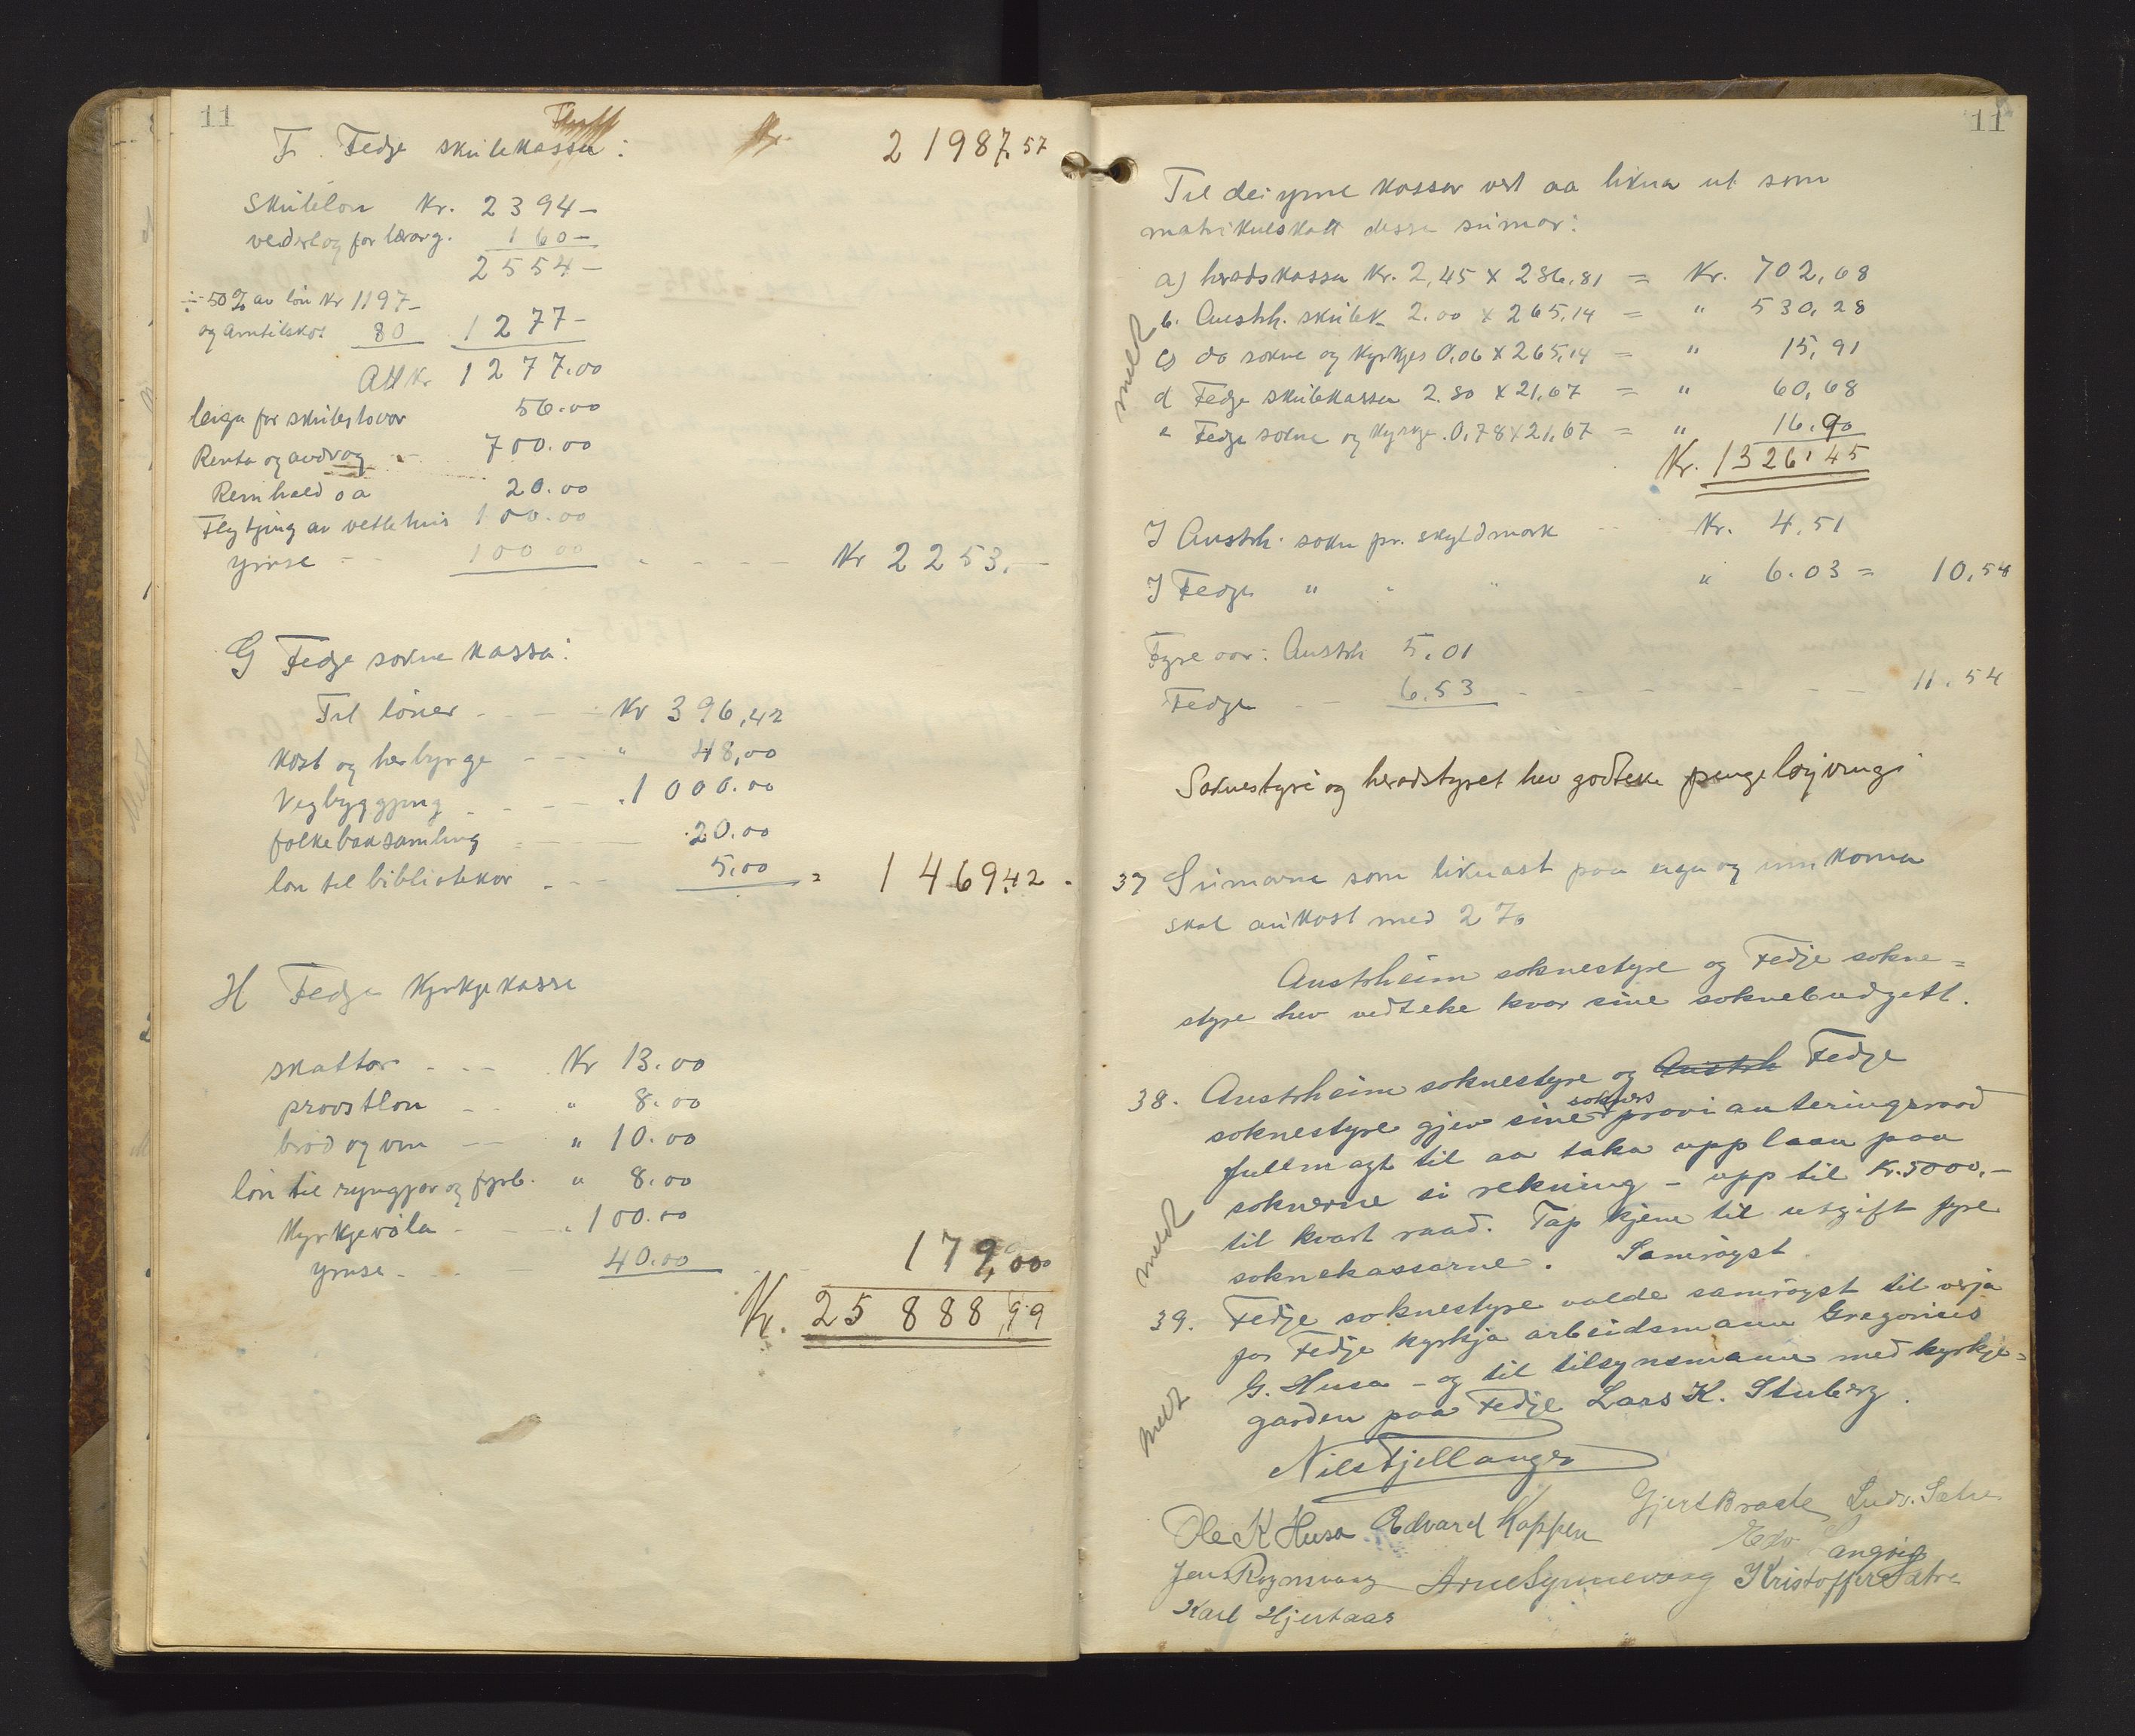 11
F. Fedje skulekassa: 21987.57
Skulelön Kr. 2394 –
vederlog for lærarg. 160 –
2554 –
÷ 50 % av lön Kr 1197 –
og Amtilskot 80 1277 –
Att Kr. 1277.00
leiga for skulestovor 56.00
Renta og avdrag 700.00
Reinhald o a 20.00
Flytjing av vetlehus 100.00
ymse 100 00 Kr 2253. –
G Fedje sokne kassa:
Til löner Kr 396,42
Kost og herbyrge " 48,00
Vegbyggjing 1000.00
folkeboksamling 20.00
lön til bibliotekar 5,00 = 1469,42.
H Fedje Kyrkjekassa
skattar Kr 13.00
provstlön " 8.00
bröd og vin " 10.00
lön til ryngjar og fyrb. " 8.00
Kyrkjevöla " 100.00
ymse 40.00 179,00
Kr. 25 888,99
11
Til dei ymse kassar vert aa likna ut som
matrikulskatt desse sumar:
a) heradskassa Kr. 2,45 x 286,81 = Kr. 702,68
b. Austrh. skulek. 2.00 x 265,14 = " 530,28
c) do sokne og kyrkjes 0,06 x 265,14 = " 15,91
d Fedje skulekassa 2.80 x 21,67 = " 60,68
e Fedje sokne og kyrkje. 0,78 x 21,67 = " 16.90
Kr. 1326,45
meldt
I Austrh. sokn pr. skyldmark Kr. 4,51
I Fedje " " " " 6.03 = 10,54
Fyre aar: Austrh 5,01
Fedje 6.53 11.54
Soknestyri og heradstyret hev godteke pengelöyvingi
37 Sumarne som liknast paa eiga og innkoma
skal aukast med 2 %
Austrheim soknestyre og Fedje sokne=
styre hev vedteke kvar sine soknebudgett.
38. Austrheim soknestyre og Austrh Fedje
soknestyre gjev sine sokners provianteringsraad
fullmagt til aa taka upp laan paa
soknerne si rekning – upp til Kr. 5000.–
til kvart raad. Tap kjem til utgift fyre
soknekassarne. Samröyst
meldt
39. Fedje soknestyre valde samröyst til verja
for Fedje kyrkja arbeidsmann Gregorius
G. Husa – og til tilsynsmann med kyrkje=
garden paa Fedje Lars K. Stuberg.
meldt
Nils Fjellanger
Gjert Braste Ludv. Sætre
Ole K Husa Edvard Koppen
Edv Langøig
Jens Rognvaag Arne Synnevaag Kristoffer Sætre
Karl Hjertaas